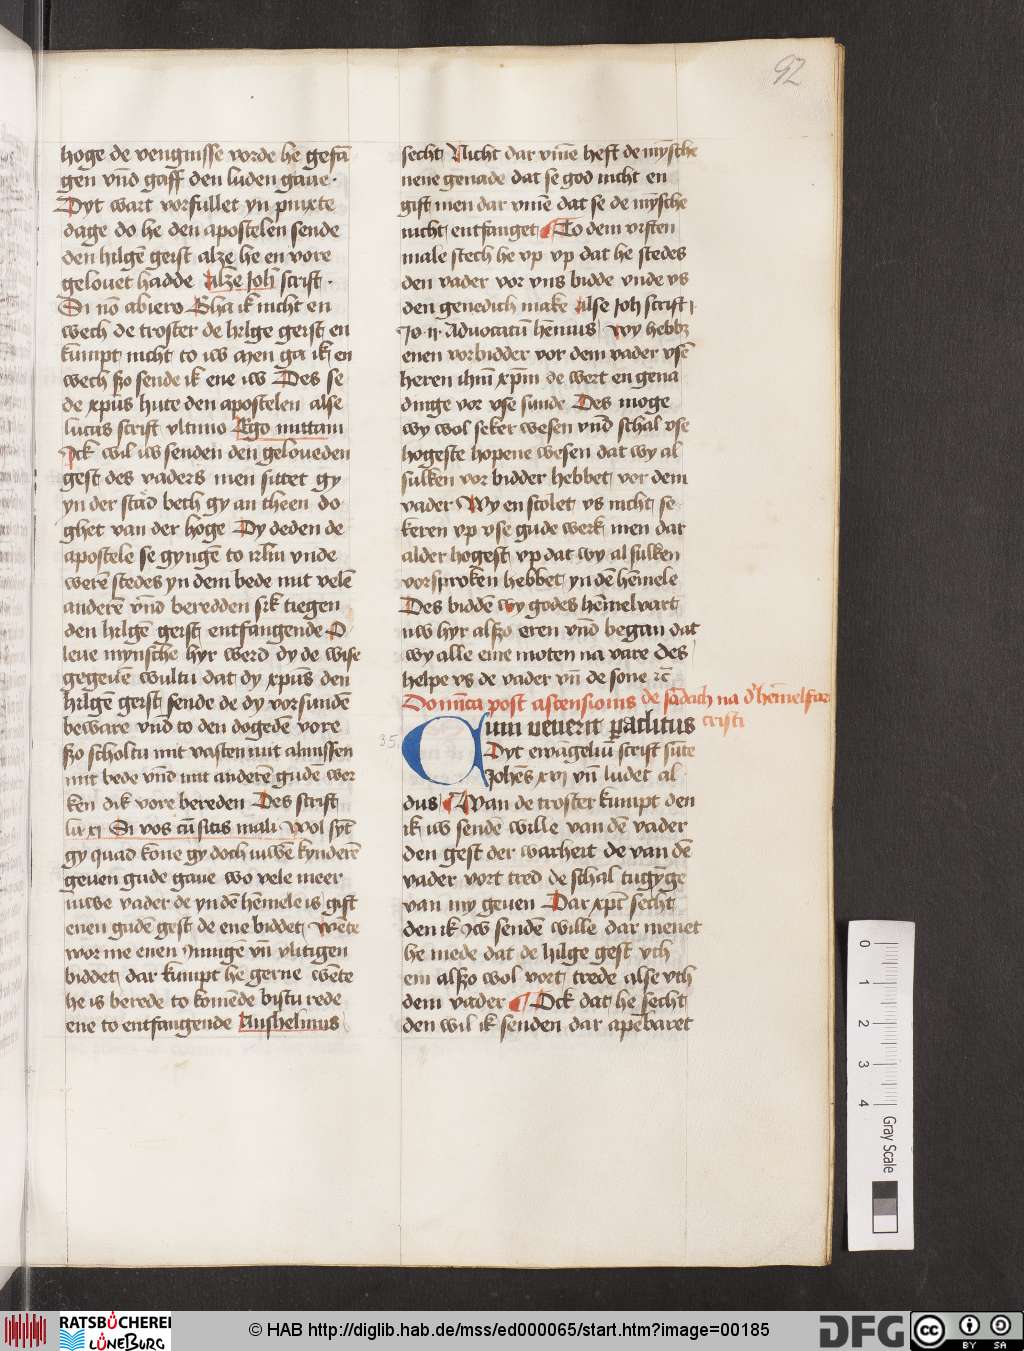 92
hoge de vengnisse vorde he gefā
gen vn̄d gaff den luden gaue ·
Dyt wart vorfullet yn pinxte
dage do he den apostelen sende
den hilgē geist alze he en vore
gelouet hadde Alze Joh̄ scrift ·
Si nō abiero Gha ik nicht en
wech de troster de hilge geist en
kumpt nicht to iw Men ga ik en
wech szo sende ik ene iw Des se
de xp̄us hute den apostelen alse
lucas scrift vltimo Ego mittam
Ick wil iw senden den geloueden
gest des vaders men sittet gy
yn der stad beth gy an theen do
ghet van der hoge Dy deden de
apostele se gyngē to irlm̄ vnde
werē stedes yn dem bede mit velē
anderē vn̄d beredden sik tiegen
den hilgē geist entfangende O
leue mynsche hyr werd dy de wise
gegeuē wultu dat dy xp̄us den
hilgē geist sende de dy vorsundē
beware vnd to den dogedē vore
szo scholtu mit vasten mit almissen
mit bede vn̄d mit anderē gudē wer
ken dik vore bereden Des scrift
lu xi Si vos cū sitis mali Wol syt
gy quad kōne gy doch iuwē kynderē
geuen gude gaue wo vele meer
iuwe vader de yn dē hēmele is gift
enen gudē gest de ene biddet Wēte
wor me enen ynnigē vn̄ vlitigen
biddet dar kumpt he gerne wēte
he is berede to komēde bistu rede
ene to entfangende Anshelmus
secht Nicht dar vm̄e heft de mȳsche
nene genade dat se god nicht en
gift men dar vm̄e dat se de mȳsche
nicht entfanget To dem vrsten
male stech he vp vp dat he stedes
den vader vor vns bidde vnde vs
den genedich make Alse Joh scrift
Jo ij · Advocatū hēmus Wy hebbꝫ
enen vorbidder vor dem vader vsē
heren ihm̄ xp̄m de wert en gena
dinge vor vse sunde Des moge
wy wol seker wesen vnd schal vse
hogeste hopene wesen dat wy al
sulken vor bidder hebbet vor dem
vader Wy en scolet vs nicht se
keren vp vse gude werk men dar
alder hogest vp dat wy al sulken
vorsproken hebbet yn dē hēmele
Des biddē wy godes hēmelvart
uw hyr alszo eren vn̄d began dat
wy alle eme moten na vare des
helpe vs de vader vn̄ de sone ⁊c̄
Domīca post ascensionis de sōdach na d' hēmelfar
cristi
35.
Cum venerit paclitus
Dyt ewāgeliū scrift sūte
Johēs xvi vn̄ ludet al
dus Wan de troster kumpt den
ik iw sendē wille van dē vader
den gest der warheit de van dē
vader vort tred de schal tugyge
van my geuen Dar xp̄t secht
den ik iw sendē wille dar menet
he mede dat de hilge gest vth
em alszo wol vort trede alse vth
dem vader Ock dat he secht
den wil ik senden dar apēbaret
0
1
2
3
4
Gray Scale
RATSBÜCHEREI
LÜNEBURG
© HAB http://diglib.hab.de/mss/ed000065/start.htm?image=00185
DFG
cc
BY SA